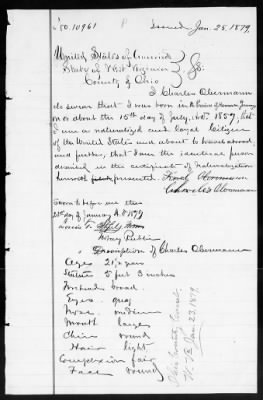 No. 10961 Issued Jan. 25, 1879.
United States of America
State of West Virginia } SS.
County of Ohio
I Charles Obermann
do swear that I was born in
on or about the 15th day of July, A.D. 1857, that
I am a naturalized and loyal Citizen
of the United States and about to travel abroad,
and further, that I am the identical person
described in the certificate of Naturalization
herewith presented.
Charles Obermann
Sworn to before me this
21st day of January A.D. 1879
Notary Public
Description of Charles Obermann
Age 21 1/2 years
Stature 5 feet 3 inches
Forehead broad
Eyes gray
Nose medium
Mouth large
Chin round
Hair light
Complexion fair
Face round
Ohio County Court
W. Va Jan. 23, 1879.